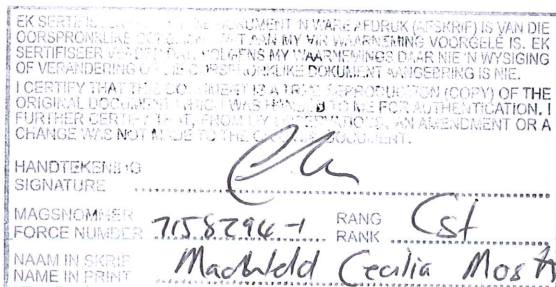 EK SERTIFISEER DOKUMENT 'N WARE AFDRUK (AFSKRIF) IS VAN DIE
OORSPRONKLIKE WAT AAN MY VIR WAARNEMING VOORGELÊ IS. EK
SERTIFISEER VOLGENS MY WAARNEMINGS DAAR NIE 'N WYSIGING
OF VERANDERING OP DIE OORSPRONKLIKE DOKUMENT AANGEBRING IS NIE.
I CERTIFY THAT THIS DOCUMENT IS A TRUE REPRODUCTION (COPY) OF THE
ORIGINAL DOCUMENT WHICH WAS HANDED TO ME FOR AUTHENTICATION. I
FURTHER CERTIFY THAT, FROM MY OBSERVATIONS, AN AMENDMENT OR A
CHANGE WAS NOT MADE TO THE ORIGINAL DOCUMENT.
HANDTEKENING
SIGNATURE
MAGSNOMMER 7158294-1 RANG Cst
FORCE NUMBER RANK
NAAM IN SKRIF Cecilia
NAME IN PRINT